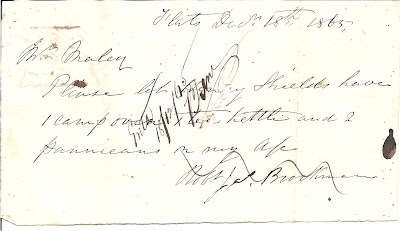 Flats Decr 18th 1865,
Mr Maley
Please let Henry Shields have
1 camp oven 1 tea kettle and 2
pannicans on my a/c
Robt Jas. Brockman
Entd
18/12/